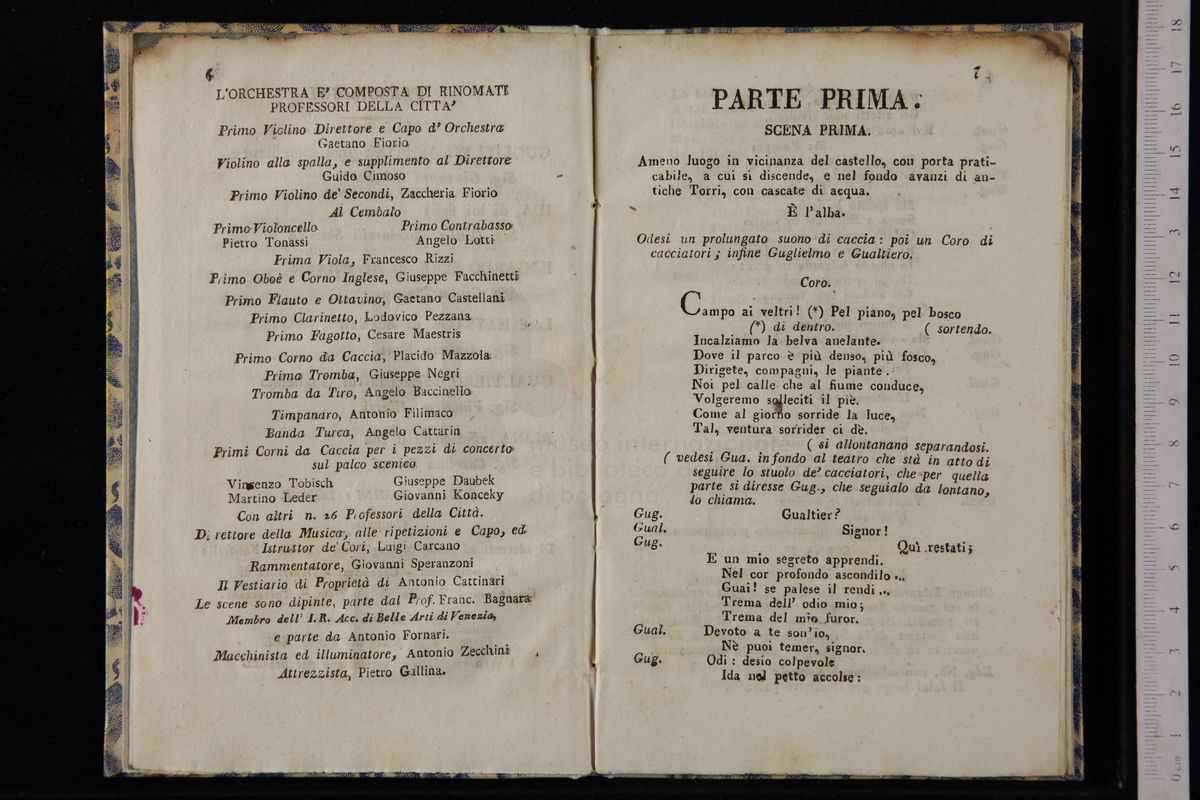 6
L'ORCHESTRA E' COMPOSTA DI RINOMATI
PROFESSORI DELLA CITTA'
Primo Violino Direttore e Capo d' Orchestra
Gaetano Fiorio
Violino alla spalla, e supplimento al Direttore
Guido Cimoso
Primo Violino de' Secondi, Zaccheria Fiorio
Al Cembalo
Primo Violoncello Primo Contrabasso
Pietro Tonassi Angelo Lotti
Prima Viola, Francesco Rizzi
Primo Oboè e Corno Inglese, Giuseppe Facchinetti
Primo Flauto e Ottavino, Gaetano Castellani
Primo Clarinetto, Lodovico Pezzana
Primo Fagotto, Cesare Maestris
Primo Corno da Caccia, Placido Mazzola
Prima Tromba, Giuseppe Negri
Tromba da Tiro, Angelo Baccinello
Timpanaro, Antonio Filimaco
Banda Turca, Angelo Cattarin
Primi Corni da Caccia per i pezzi di concerto
sul palco scenico
Vincenzo Tobisch Giuseppe Daubek
Martino Leder Giovanni Konceky
Con altri n. 26 Professori della Città.
Direttore della Musica, alle ripetizioni e Capo, ed
Istruttor de' Cori, Luigi Carcano
Rammentatore, Giovanni Speranzoni
Il Vestiario di Proprietà di Antonio Cattinari
Le scene sono dipinte, parte dal Prof. Franc. Bagnara
Membro dell' I. R. Acc. di Belle Arti di Venezia,
e parte da Antonio Fornari.
Macchinista ed illuminatore, Antonio Zecchini
Attrezzista, Pietro Gallina.
7
PARTE PRIMA.
SCENA PRIMA.
Ameno luogo in vicinanza del castello, con porta prati-
cabile, a cui si discende, e nel fondo avanzi di an-
tiche Torri, con cascate di acqua.
È l'alba.
Odesi un prolungato suono di caccia : poi un Coro di
cacciatori ; infine Guglielmo e Gualtiero.
Coro.
Campo ai veltri! (*) Pel piano, pel bosco
(*) di dentro. ( sortendo.
Incalziamo la belva anelante.
Dove il parco è più denso, più fosco,
Dirigete, compagni, le piante.
Noi pel calle che al fiume conduce,
Volgeremo solleciti il piè.
Come al giorno sorride la luce,
Tal, ventura sorrider ci dè.
( si allontanano separandosi.
( vedesi Gua. infondo al teatro che stà in atto di
seguire lo stuolo de' cacciatori, che per quella
parte si diresse Gug., che seguialo da lontano,
lo chiama.
Gug. Gualtier?
Gual. Signor!
Gug. Quì restati;
E un mio segreto apprendi.
Nel cor profondo ascondilo ...
Guai! se palese il rendi ...
Trema dell' odio mio;
Trema del mio furor.
Gual. Devoto a te son'io,
Nè puoi temer, signor.
Gug. Odi : desio colpevole
Ida nel petto accolse :
museo internazionale
biblioteca
di bologna
0 cm 1 2 3 4 5 6 7 8 9 10 11 12 13 14 15 16 17 18